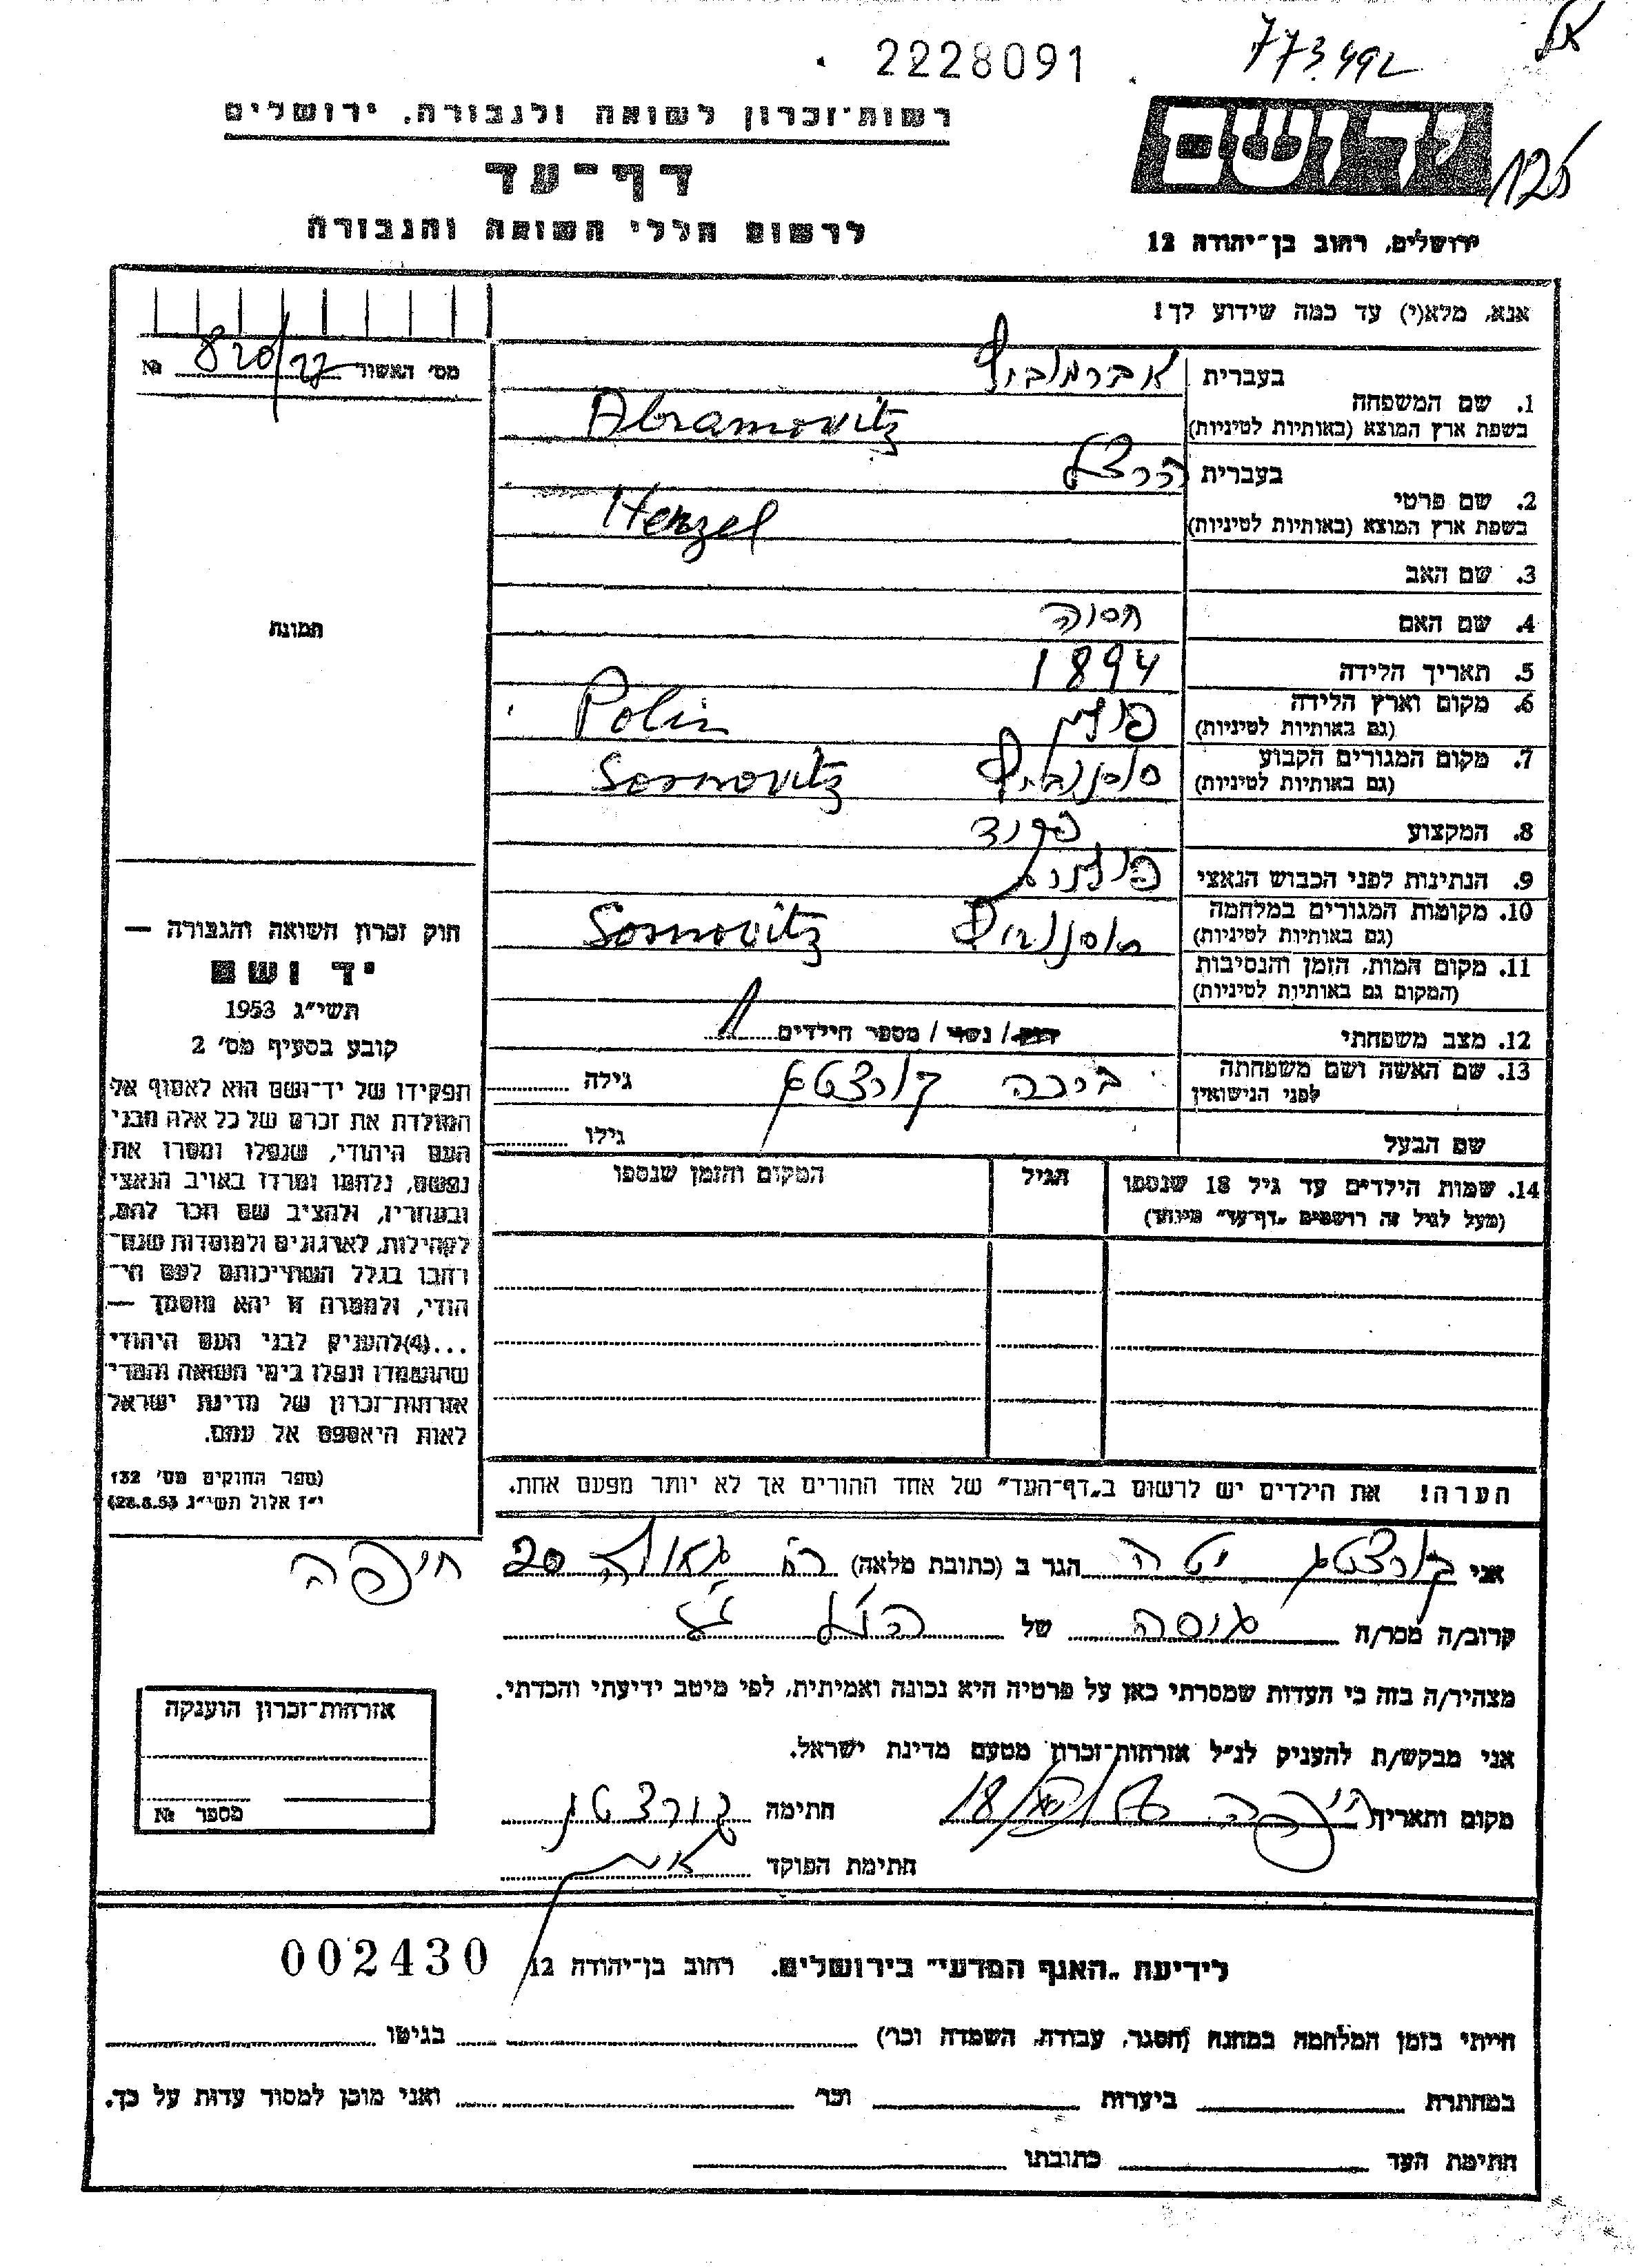 2228091
773.492
רשות־זכרון לשואה ולגבורה, ירושלים
ידושם
125
דף־עד
לרשום חללי השואה והגבורה
ירושלים, רחוב בן־יהודה 12
אנא, מלא(י) עד כמה שידוע לך!
מס׳ האשור 820/27 №
בעברית אברמוביץ
1. שם המשפחה
בשפת ארץ המוצא (באותיות לטיניות) Abramovitz
בעברית הרצל
2. שם פרטי
בשפת ארץ המוצא (באותיות לטיניות) Herzel
3. שם האב
4. שם האם חסוה
תמונה
5. תאריך הלידה 1894
6. מקום וארץ הלידה פולין Polin
(גם באותיות לטיניות)
7. מקום המגורים הקבוע סוסנוביץ Sosnovitz
(גם באותיות לטיניות)
8. המקצוע פקיד
9. הנתינות לפני הכבוש הנאצי פולנית
10. מקומות המגורים במלחמה סוסנוביץ Sosnovitz
(גם באותיות לטיניות)
11. מקום המות, הזמן והנסיבות
(המקום גם באותיות לטיניות)
12. מצב משפחתי רוק / נשוי / מספר הילדים
13. שם האשה ושם משפחתה
לפני הנישואין גילה
שם הבעל גילו
14. שמות הילדים עד גיל 18 שנספו הגיל המקום והזמן שנספו
(מעל לגיל זה רושמים „דף־עד״ מיוחד)
חוק זכרון השואה והגבורה —
יד ושם
תשי״ג 1953
קובע בסעיף מס׳ 2
תפקידו של יד־ושם הוא לאסוף אל
המולדת את זכרם של כל אלה מבני
העם היהודי, שנפלו ומסרו את
נפשם, נלחמו ומרדו באויב הנאצי
ובעוזריו, ולהציב שם וזכר להם,
לקהילות, לארגונים ולמוסדות שנח־
רבו בגלל השתייכותם לעם הי־
הודי, ולמטרה זו יהא מוסמך —
...(4) להעניק לבני העם היהודי
שהושמדו ונפלו בימי השואה והמרי
אזרחות־זכרון של מדינת ישראל
לאות היאספם אל עמם.
(ספר החוקים מס׳ 132
י״ז אלול תשי״ג 28.8.53)
הערה! את הילדים יש לרשום ב„דף־העד״ של אחד ההורים אך לא יותר מפעם אחת.
אני קורצטג יטה הגר ב (כתובת מלאה) רח׳ גאולה 20 חיפה
קרוב/ה מכר/ה גיסה של הנ״ל
מצהיר/ה בזה כי העדות שמסרתי כאן על פרטיה היא נכונה ואמיתית, לפי מיטב ידיעתי והכרתי.
אני מבקש/ת להעניק לנ״ל אזרחות־זכרון מטעם מדינת ישראל.
מקום ותאריך חיפה חתימה
חתימת הפוקד
אזרחות־זכרון הוענקה
מספר №
לידיעת „האגף המדעי״ בירושלים. רחוב בן־יהודה 12 002430
הייתי בזמן המלחמה במחנה (הסגר, עבודה, השמדה וכו׳) בגיטו
במחתרת ביערות וכו׳ ואני מוכן למסור עדות על כך.
חתימת העד כתובתו